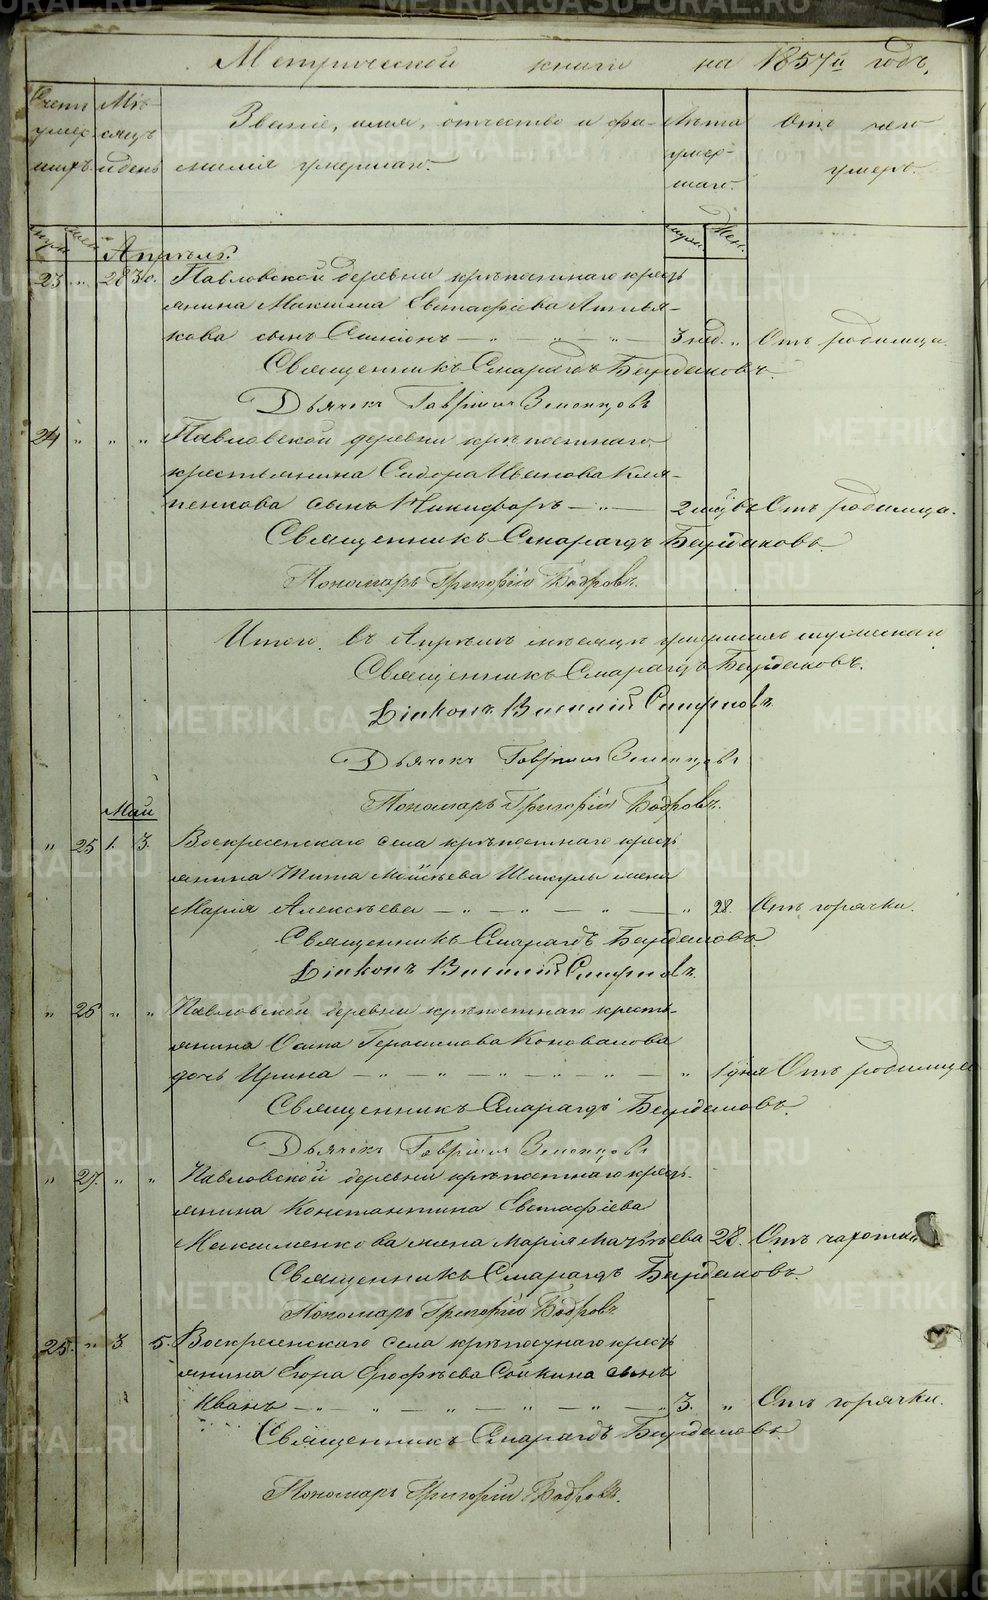 Метрической книги на 1857й годъ.
Счетъ умершихъ.
Мѣсяцъ и день
Званіе, имя, отчество и фамилія умершаго.
Лѣта умершаго.
Отъ чего умеръ.
муж. жен. муж. жен.
Апрѣль.
23 „ 28 30. Павловской деревни крѣпостнаго крестьянина Максима Евстафіева
кова сынъ Симеонъ — „ — „ — „ — 3 нед. „ Отъ родимца.
Священникъ Смарагдъ Бурдаковъ.
Дьячекъ Гавріилъ
24 „ „ „ Павловской деревни крѣпостнаго
крестьянина Сидора Иванова
пенкова сынъ Никифоръ — „ — 2 мѣс. Отъ родимца.
Священникъ Смарагдъ Бурдаковъ.
Пономарь Григорій Бодровъ.
Итого въ Апрѣлѣ мѣсяцѣ умершихъ мужескаго
Священникъ Смарагдъ Бурдаковъ.
Діаконъ Василій Смирновъ
Дьячекъ Гавріилъ
Пономарь Григорій Бодровъ.
Май
„ 25 1. 3. Воскресенскаго села крѣпостнаго крестьянина Тита Моисѣева жена
Марія Алексѣева — „ — „ — „ — „ 28. Отъ горячки.
Священникъ Смарагдъ Бурдаковъ
Діаконъ Василій Смирновъ.
„ 26 „ „ Павловской деревни крѣпостнаго кресть-
янина Герасимова Коновалова
дочь Ирина — „ — „ — „ — „ — „ 1 дня Отъ родимца
Священникъ Смарагдъ Бурдаковъ.
Дьячекъ Гавріилъ
„ 27. „ „ Павловской деревни крѣпостнаго кресть-
янина Константина Евстафіева
Максименкова жена Марія Матвѣева 28. Отъ чахотки
Священникъ Смарагдъ Бурдаковъ.
Пономарь Григорій Бодровъ
25. „ 3. 5. Воскресенскаго села крѣпостнаго кресть
янина Егора Ерофѣева Сойкина сынъ
Иванъ — „ — „ — „ — „ — „ — 3. „ Отъ горячки.
Священникъ Смарагдъ Бурдаковъ
Пономарь Григорій Бодровъ.
METRIKI.GASO-URAL.RU